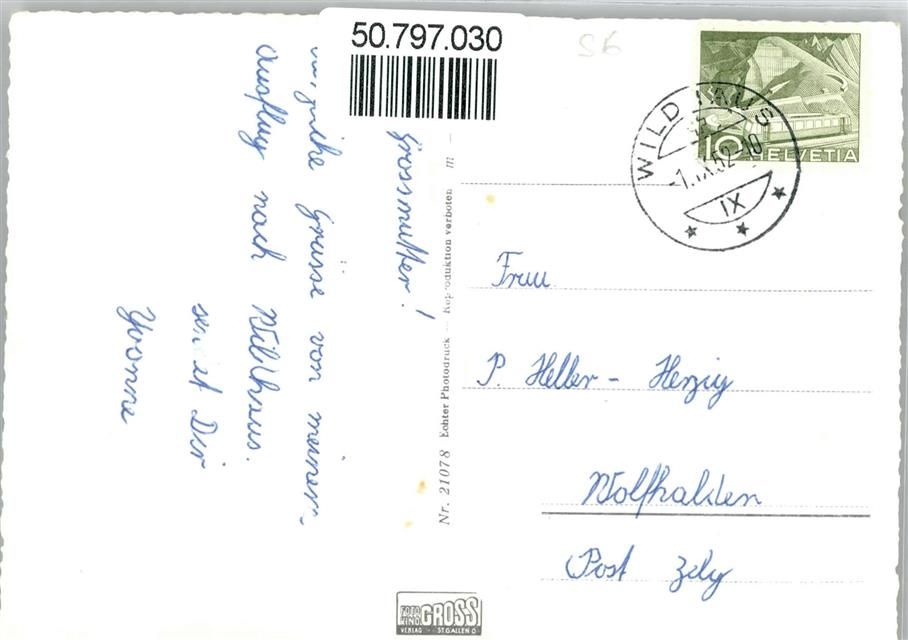 50.797.030
S6
Grossmutter!
Grüsse von meinem
Ausflug nach Wildhaus.
Dir
Yvonne
Nr. 21078 Echter Photodruck — Reproduktion verboten m —
WILDHAUS
-1.IX.52-10
IX
10 HELVETIA
Frau
P. Heller - Herzig
Wolfhalden
Post Zelg
FOTO KINO GROSS
VERLAG ST. GALLEN O